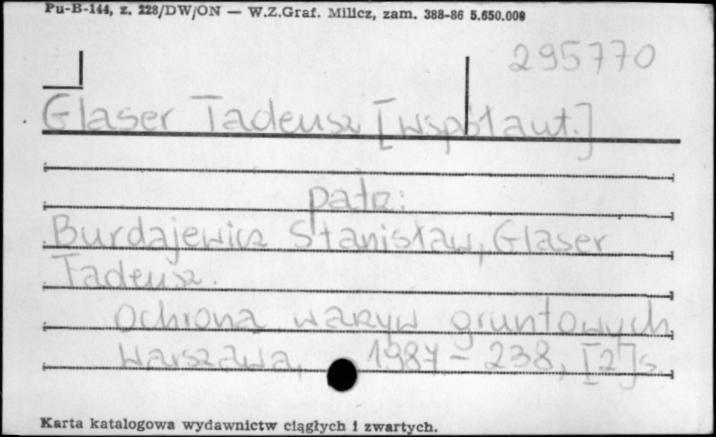 Pu-B-144, z. 228/DW/ON — W.Z.Graf. Milicz, zam. 388-86 5.650.000
295770
Glaser Tadeusz [współaut.]
patrz:
Burdajewicz Stanisław, Glaser
Tadeusz.
Ochrona warzyw gruntowych.
Warszawa, 1987 - 238, [2] s.
Karta katalogowa wydawnictw ciągłych i zwartych.